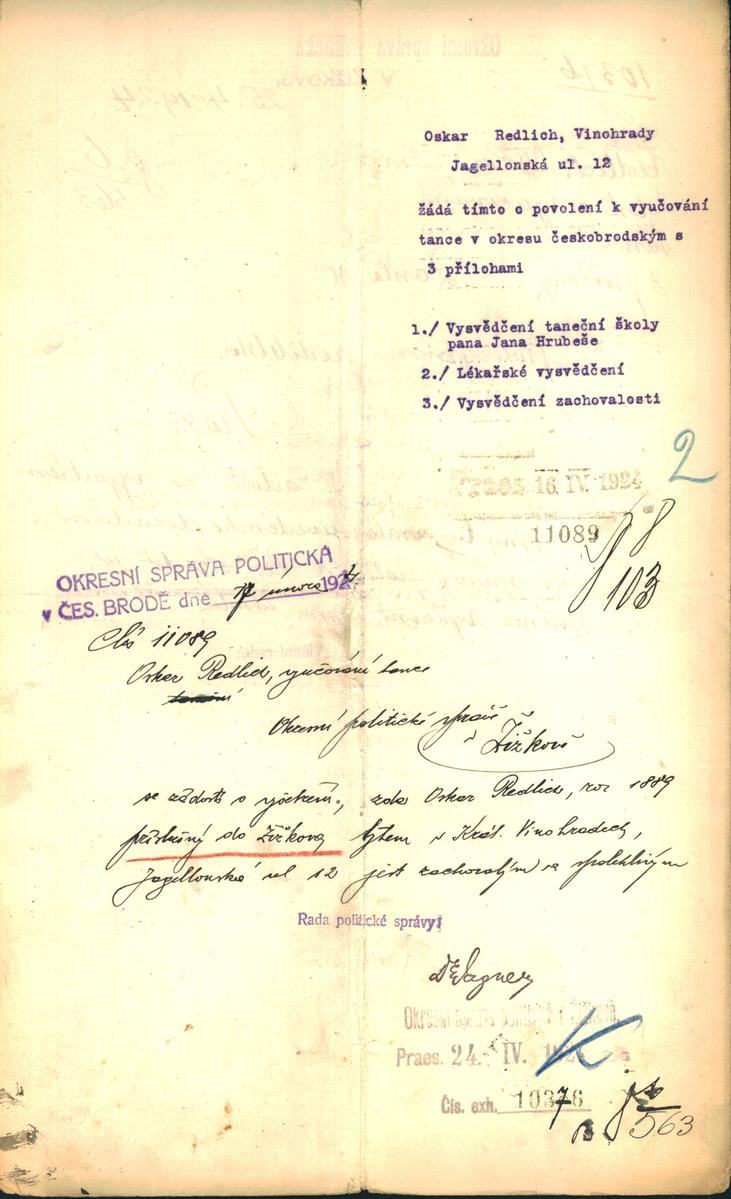 Oskar Redlich, Vinohrady
Jagellonská ul. 12
žádá tímto o povolení k vyučování
tance v okresu českobrodským s
3 přílohami
1./ Vysvědčení taneční školy
pana Jana Hrubeše
2./ Lékařské vysvědčení
3./ Vysvědčení zachovalosti
2
Praes 16 IV. 1924
11089
8
103
OKRESNÍ SPRÁVA POLITICKÁ
v ČES. BRODĚ dne 17 února 1924
Čís 11089
Oskar Redlich, vyučování tance
Okresní politické správě
v Žižkově
se žádostí o vyšetření, zda Oskar Redlich, roz 1889
příslušný do Žižkova bytem v Král. Vinohradech,
Jagellonská ul 12 jest zachovalým a spolehlivým
Rada politické správy:
Dr Wagner
Okresní správa politická v Žižkově.
Praes. 24. IV. 192
Čís. exh. 10376
563